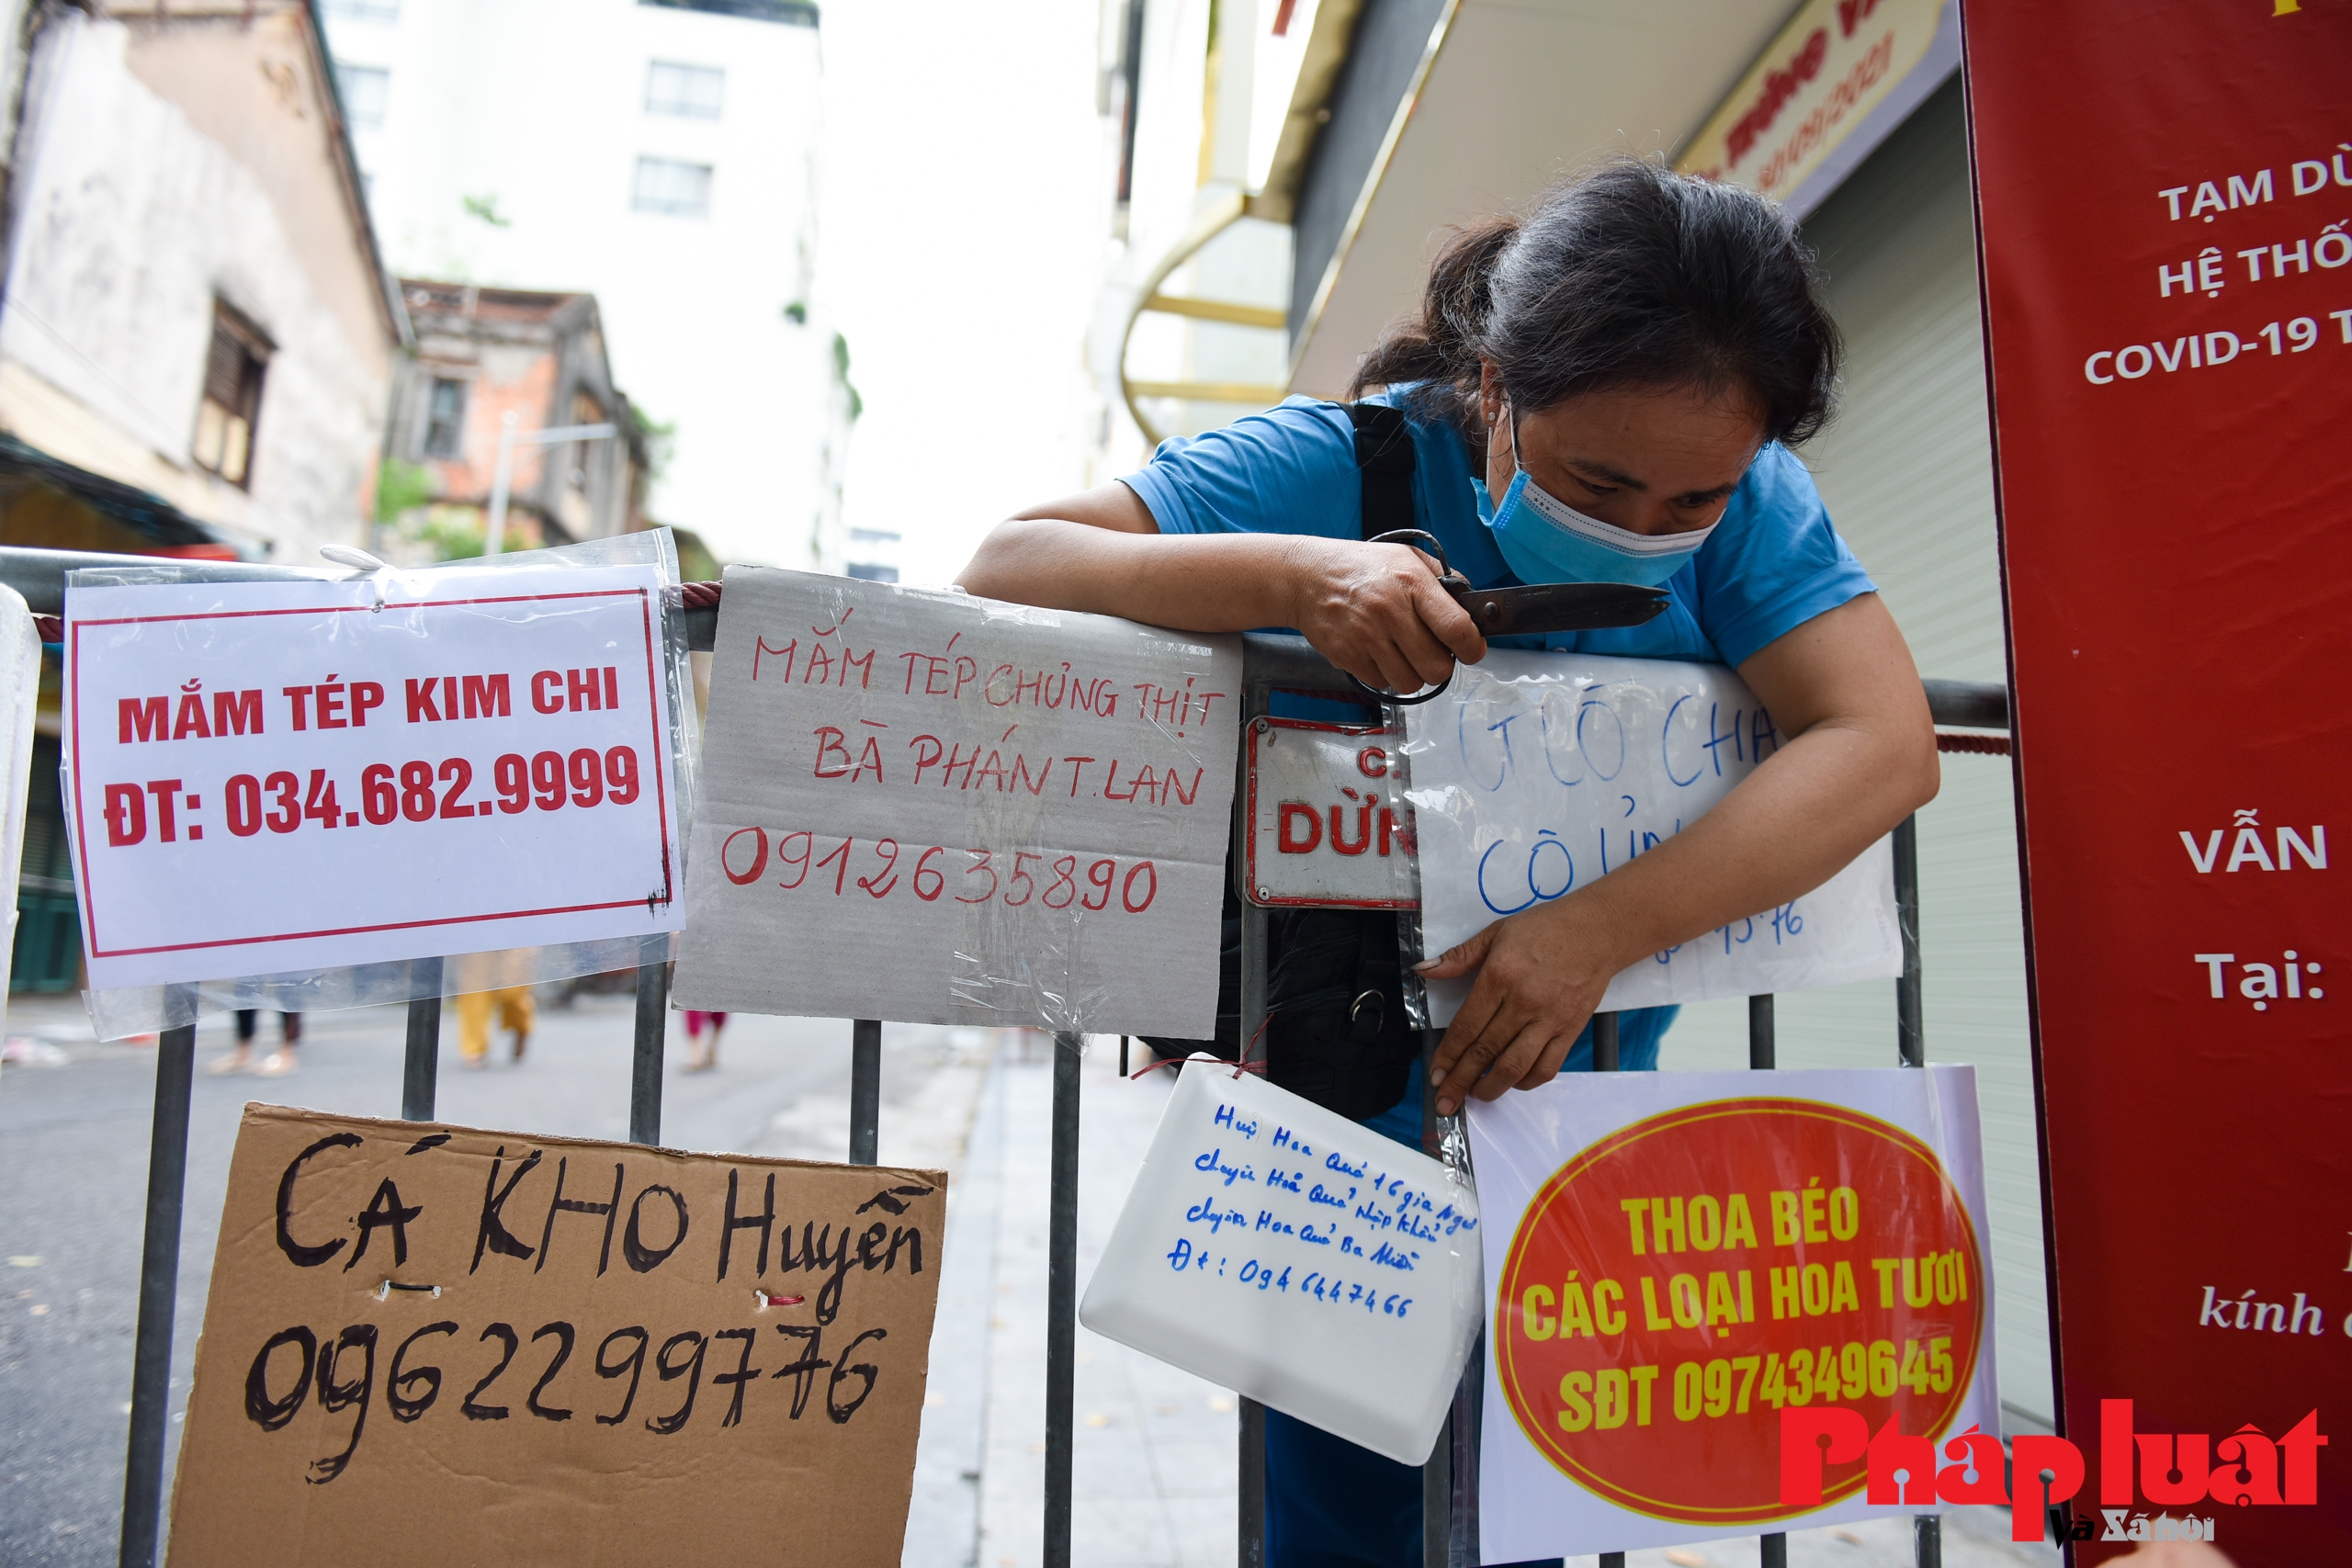 30/09/2021
TẠM DỪ
HỆ THỐ
COVID-19 T
VẪN
Tại:
kính
MẮM TÉP KIM CHI
ĐT: 034.682.9999
MẮM TÉP CHỦNG THỊT
BÀ PHÁN T.LAN
0912635890
C.
DỪN
GIÒ CHẢ
CÔ
CÁ KHO Huyền
0962299776
Huệ Hoa Quả 16 gia Ngư
chuyên Hoa Quả nhập khẩu
chuyên Hoa Quả Ba Miền
Đt: 0946447466
THOA BÉO
CÁC LOẠI HOA TƯƠI
SĐT 0974349645
Pháp luật
và Xã hội